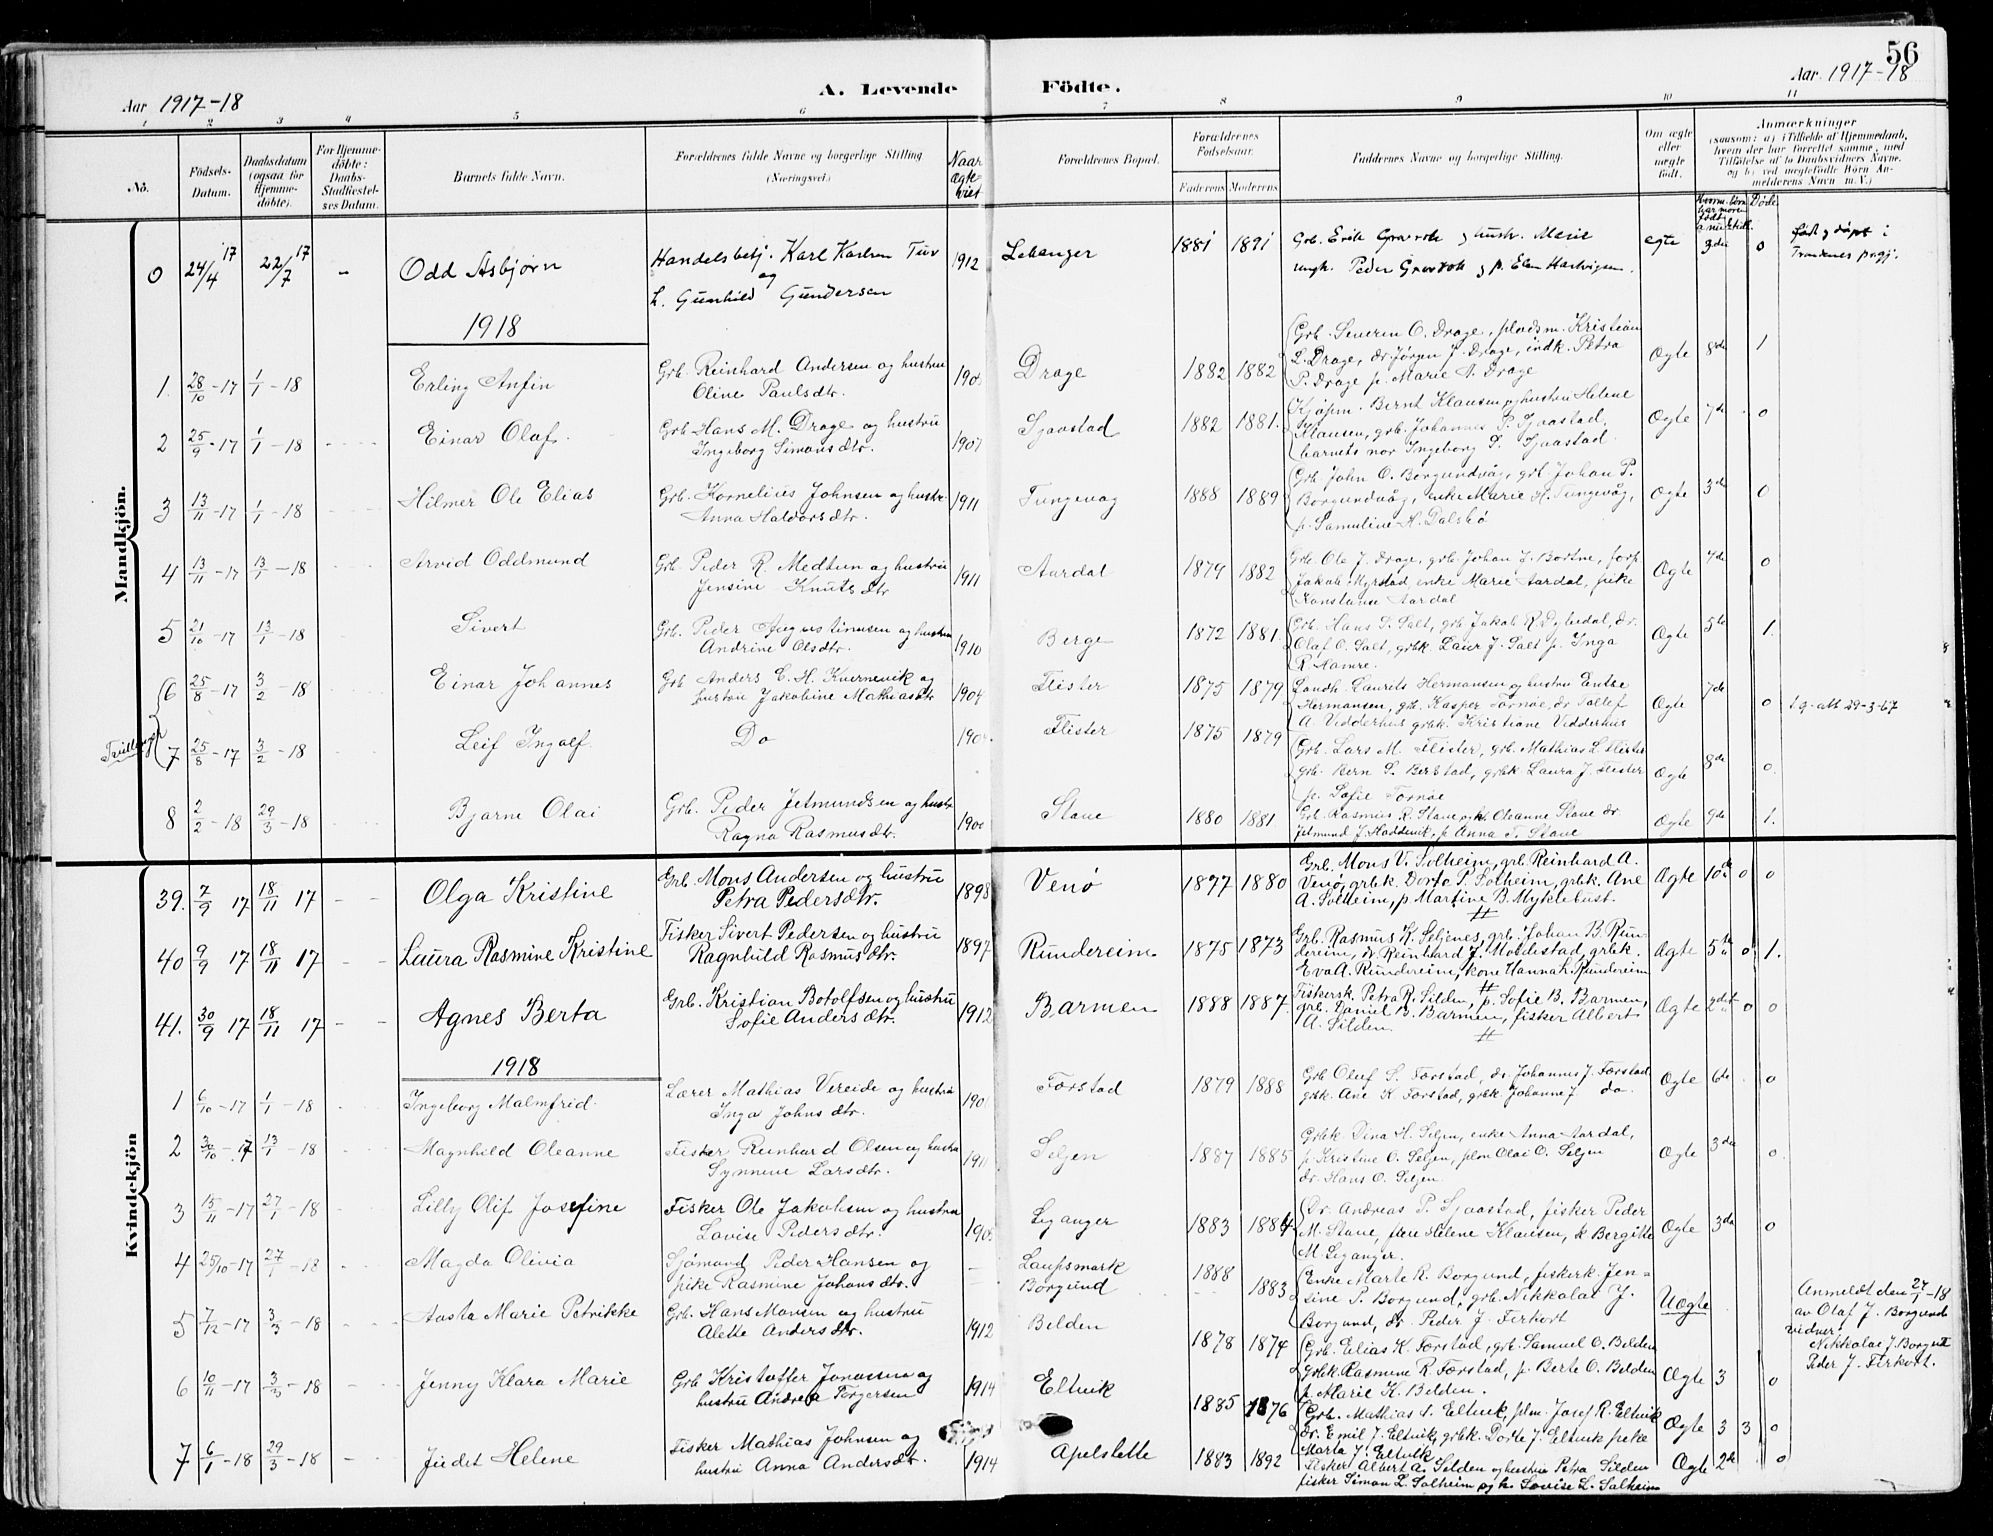 56
Aar 1917-18
A. Levende Födte.
Aar 1917-18
1 2 3 4 5 6 7 8 9 10 11
No.
Födsels-Datum.
Daabsdatum (ogsaa for Hjemme-döbte).
For Hjemme-döbte: Daabs-Stadfæstel-ses Datum.
Barnets fulde Navn.
Forældrenes fulde Navne og borgerlige Stilling (Næringsvei).
Naar ægte-viet
Forældrenes Bopæl.
Forældrenes Födselsaar.
Faderens Moderens
Faddernes Navne og borgerlige Stilling.
Om ægte eller uægte födt.
Anmærkninger
(saasom: a) i Tilfælde af Hjemmedaab, hvem der har forrettet samme, med Tilföielse af to Daabsvidners Navne, og b) ved uægtefödte Börn An-melderens Navn m. V.)
Døde
Mandkjön.
0 24/4 17 22/7 17 - Odd Asbjørn Handelsbetj. Karl Karlsen Tuv og h. Gunhild Gundersen 1912 Lekanger 1881 1891 Grb. Erik Gravrok og hustr. Marie ungk. Peder Gravrok og p. Elen Hartvigsen. ægte 3die 0 født og døpt i Trondenes prgj.
1918
1. 28/10-17 1/1-18 Erling Anfin Grb. Reinhard Andersen og hustru Oline Paulsdtr. Drage 1882 1882 Grb. Severin O. Drage, pladsm. Kristian L. Drage, dr. Jørgen J. Drage, indk. Petra P. Drage p. Marie A. Drage Ægte 8de 1
2 25/9-17 1/1-18 Einar Olaf. Grb Hans M. Drage og hustru Ingeborg Simonsdtr. 1907 Sjaastad 1882 1881. Kjøpm. Bernt Klausen og hustru Helene Klausen, grb. Johannes P. Sjaastad, barnets mor Ingeborg S. Sjaastad. Ægte 7de 0
3 13/11-17 1/1-18 Hilmer Ole Elias Grb. Kornelius Johnsen og hustr. Anna Haldorsdtr. 1911 Tungevaag 1888 1889 Grb. John O. Borgundvåg, grb. Johan P. Borgundvåg, enke Marie H. Tungevåg, p. Samuline H. Dalsbø Ægte 3de 0
4 13/11-17 13/1-18 Arvid Oddmund Grb. Peder R. Medtun og hustru Jensine Knutsdtr 1911 Aardal 1879 1882 Grb. Ole J. Drage, grb. Johan J. Bortne, forp. Jakob Myrstad enke Marie Aardal, pike Konstanse Aardal Ægte 7de 0
5 21/10-17 13/1-18 Sivert Grb. Peder Augustinusen og hustru Andrine Olsdtr. 1910 Berge 1872 1881. Grb. Hans S. Salt, grb. Jakob R. , dr. Olaf O. Salt, grbk. Laur J. Salt p. Inga R. Hamre. Ægte 5te 1.
6 25/8-17 3/2-18 Einar Johannes Grb Anders E. H. Kvernevik og hustru Jakobine Mathiasdtr 1904 Flister 1875 1879 Landh. Laurits Hermansen og hustru Entse Hermansen, grb. Kasper Tornøe, dr Tollef A. Vedderhus grbk. Kristiane Vedderhus Ægte 7de 0 19-att 29-3-67
Tvillinger
7 25/8-17 3/2-18 Leif Ingolf. Do Flister 1875 1879 Grb. Lars M. Flister, grb. Mathias L. Flister grb. Bern S. Berstad, grbk Laura J. Flister p. Sofie Tornøe Ægte 8de 0.
8 2/2-18 29/3-18 Bjarne Olai Grb. Peder Jetmundsen og hustr. Ragna Rasmusdtr. 1900 Stave 1880 1881. Grb. Rasmus R. Stave og k. Oleanne Stave dr. Jetmund J. Hoddevik, p. Anna T. Stave Ægte 9de 1.
Kvindekjön
39. 7/9 17 18/11 17 - - Olga Kristine Grb. Mons Andersen og hustru Petra Pedersdtr. 1898 Venø 1877 1880 Grb. Mons V. Solheim, grb. Reinhard A. Venø, grbk. Dorte P. Solheim, grbk. Ane A. Solheim, p. Martine B. Myklebust. Ægte 10de 0 0
40 9/9 17 18/11 17 - - Laura Rasmine Kristine Fisker Sivert Pedersen og hustru Ragnhild Rasmusdtr. 1897 Rundereim 1875 1873 Grb. Rasmus K. Seljenes, grb. Johan B. Run-dereim, dr Reinhard J. Moldestad, grbk. Eva A. Rundereim, kone Hanna L. Rundereim Ægte 5te 0 1.
41. 30/9 17 18/11 17 - - Agnes Berta Grb. Kristian Botolfsen og hustru Sofie Andersdtr. 1912 Barmen 1888 1887. Fiskersk. Petra R. Silden, p. Sofie B. Barmen, grb. Daniel B. Barmen, fisker Albert A. Silden. Ægte 2det 0 0
1918
1 6/10-17 1/1-18 Ingeborg Malmfrid. Lærer Mathias Vereide og hustru Inga Johnsdtr. Førstad 1879 1888 Grb Oluf S. Førstad, dr. Johannes J. Førstad grbk. Ane K. Førstad, grbk. Johanne J. do. Ægte 6te 0
2 30/10-17 13/1-18 Magnhild Oleanne Fisker Reinhard Olsen og hustru Synneve Larsdtr. 1911 Seljen 1887 1885 Grbk. Dina H. Seljen, enke Anna Aardal, p. Kristine O. Seljen, plm Olai O. Seljen dr. Hans O. Seljen. Ægte 3die 0
3 15/11-17 27/1-18 Lilly Olif Josefine Fisker Ole Jakobsen og hustru Lovise Pedersdtr. Leganger 1883 1884 Dr. Andreas P. Sjaastad, fisker Peder M. Stave, frue Helene Klausen, k Bergitte M. Leganger. Ægte 3die 0
4 25/10-17 27/1-18 Magda Olivia Sjømand Peder Hansen og pike Rasmine Johansdtr. - Laupsmark Borgund 1888 1883 Enke Marte R. Borgund, fiskerk. Jen=sine P. Borgund, grb. Nikkolai J. Borgund, dr. Peder J. Firkott Uægte Anmeldt den 27/1-18 av Olaf J. Borgund vidner Nikkolai J Borgund Peder J. Firkott.
5 7/12-17 3/3-18 Aasta Marie Petrikke Grb. Hans Monsen og hustru Alette Andersdtr. 1912 Belden 1878 1874 Grb. Elias K. Førstad, grb. Samuel O. Belden grbk Rasmine R. Førstad, p. Berte O. Belden p. Marie K. Belden. Ægte 3 0
6 10/11-17 3/3-18 Jenny Klara Marie Grb Kristoffer Jonassen og hustru Andrea Torgersen 1914 Eltvik 1885 1876 Grb. Mathias A. Eltvik, plm. Josef R. Eltvik dr. Emil J. Eltvik, grbk. Dorte J. Eltvik pike Marta J. Eltvik Ægte 3 3 0
7 6/1-18 29/3-18 Judet Helene Fisker Mathias Johnsen og hustru Anna Andersdtr. 1914 Apelslette 1883 1892 Fisker Albert A. Silden og hustru Petra Silden fisker Simon L. Solheim og k. Lovise L. Solheim Ægte 2de 0